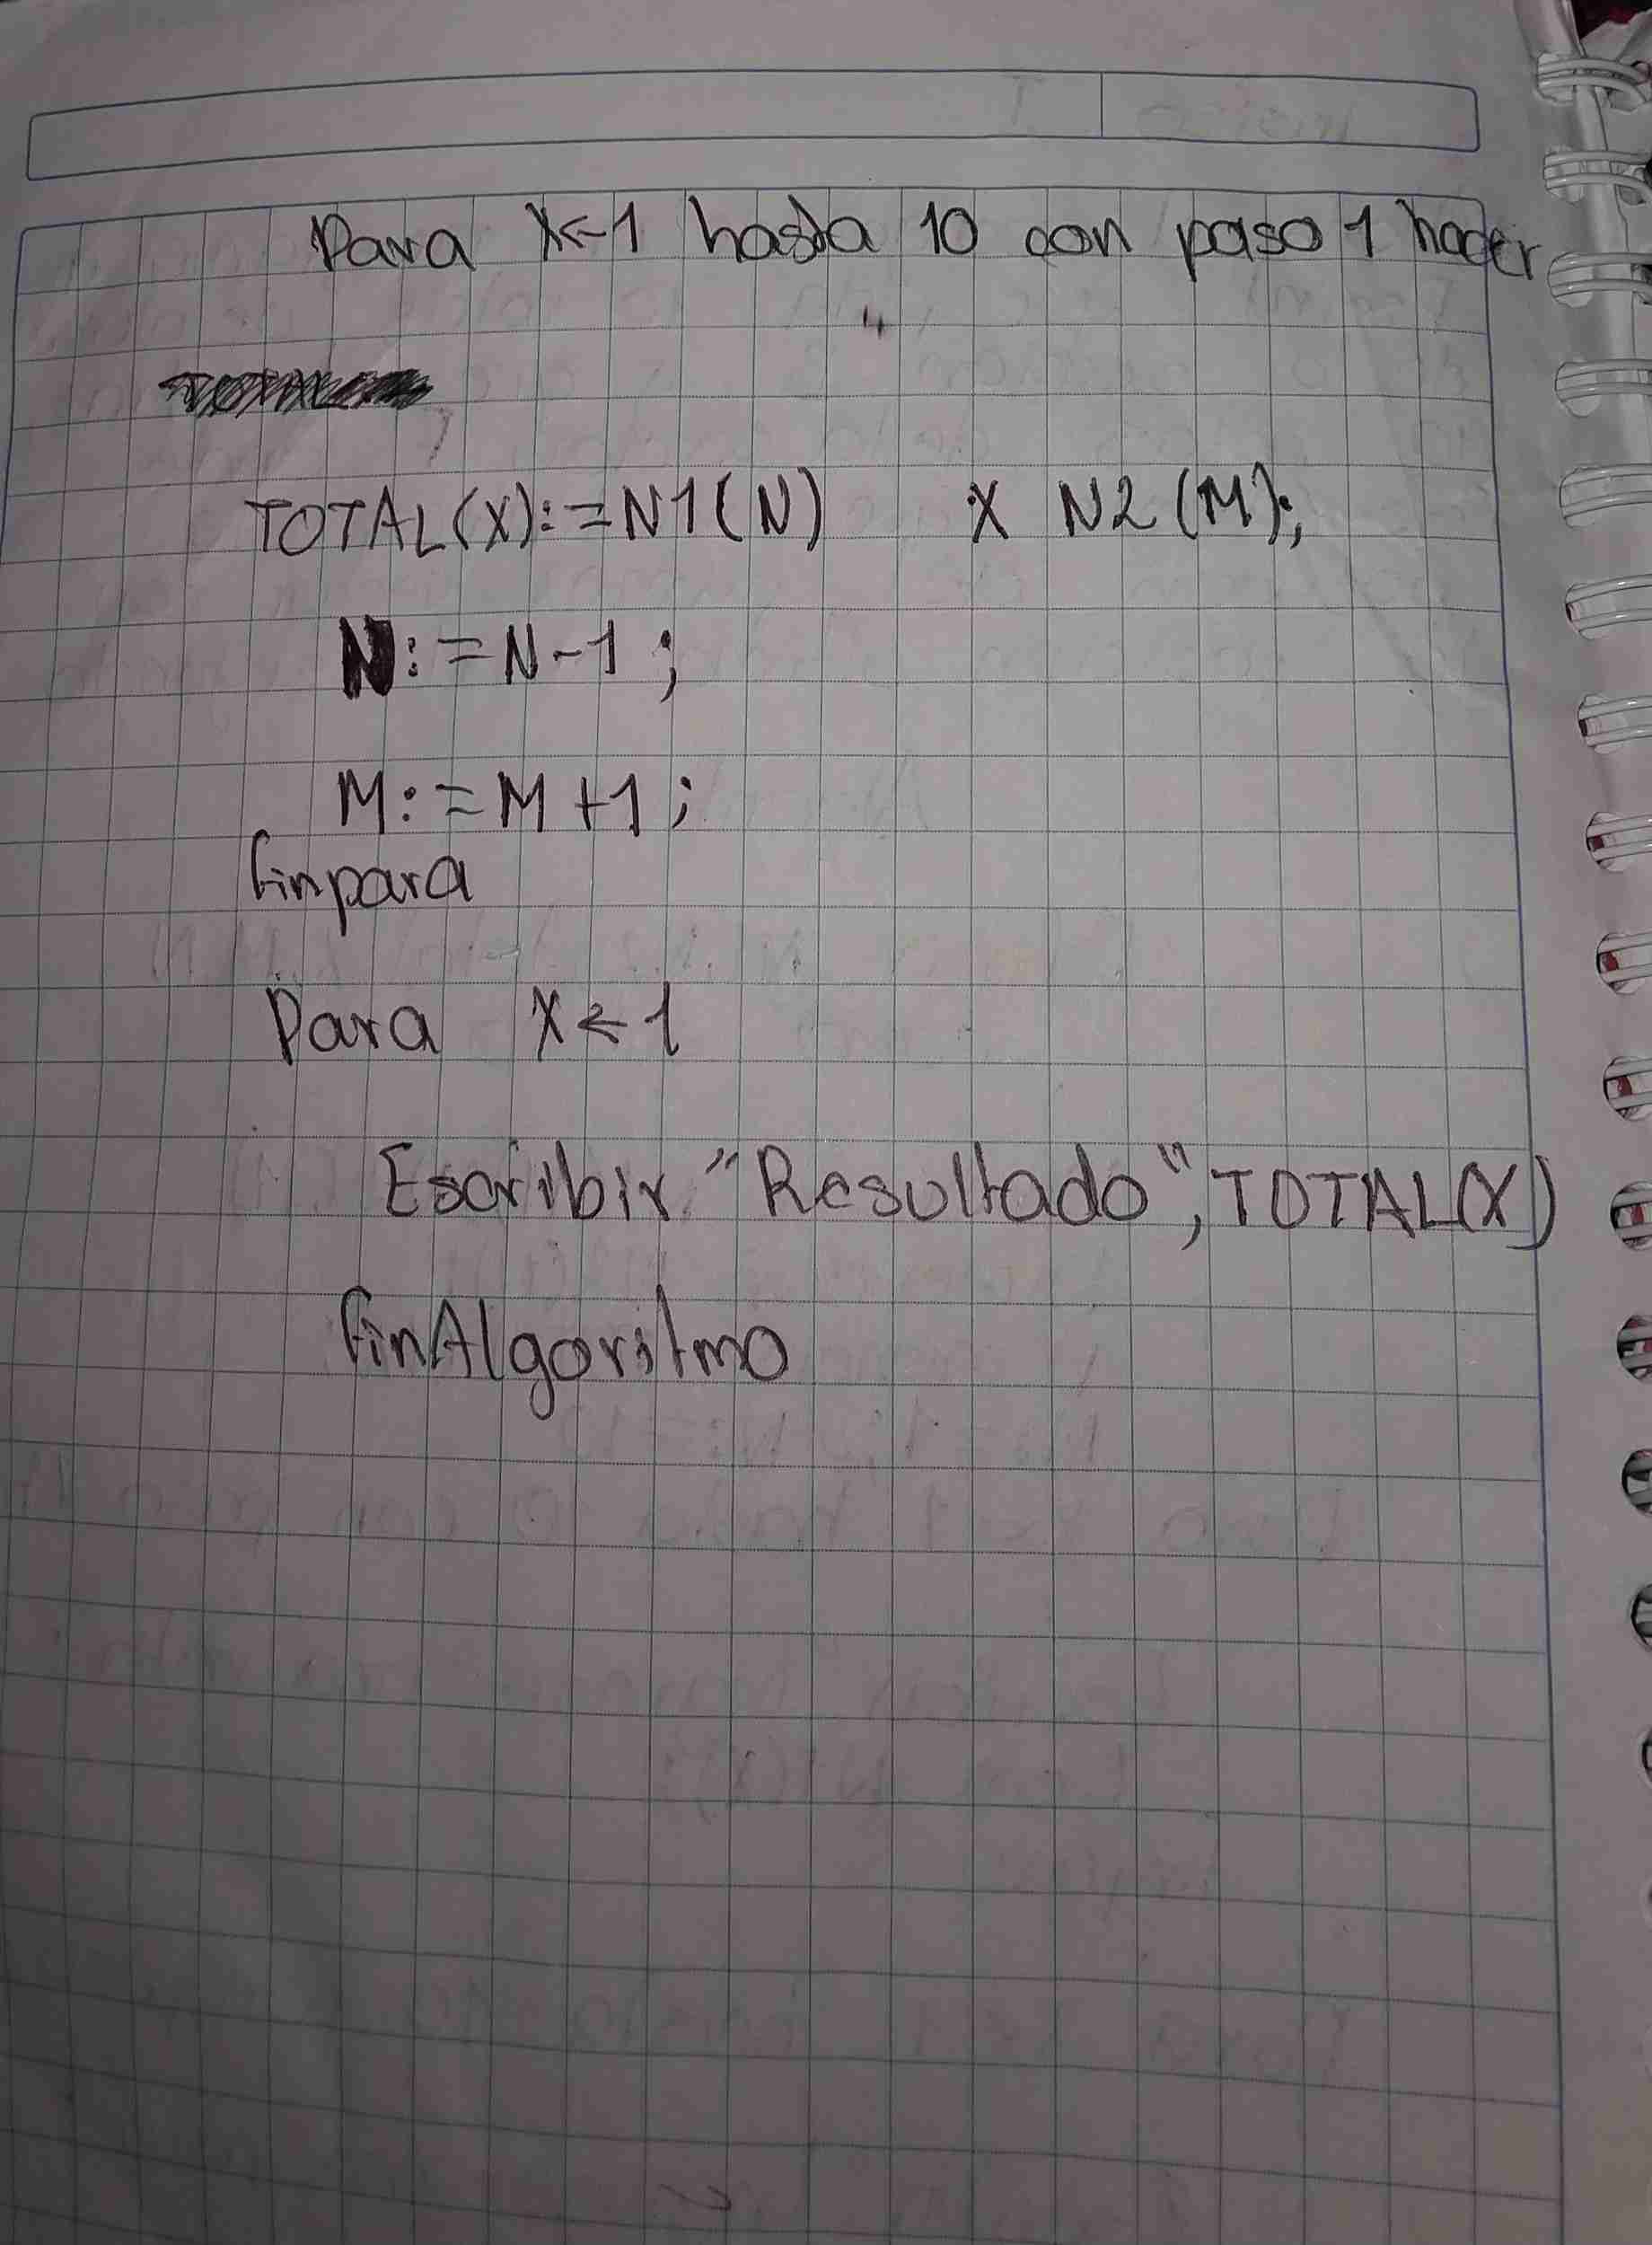 Para X<-1 hasta 10 con paso 1 hacer
TOTAL(X):=N1(N) X N2(M);
N:=N-1;
M:=M+1;
finpara
Para X<-1
Escribir "Resultado", TOTAL(X)
finAlgoritmo